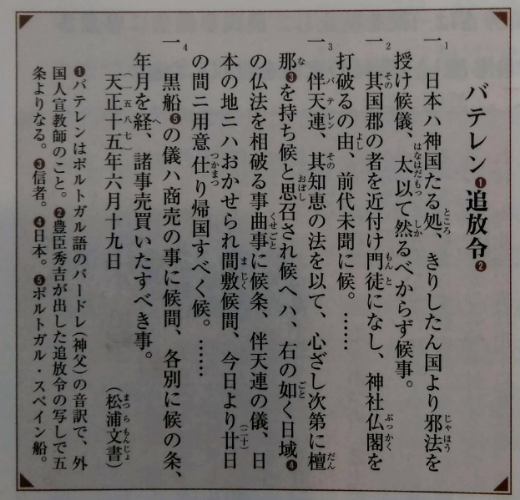 バテレン❶追放令❷
一1 日本ハ神国たる処、きりしたん国より邪法を
授け候儀、太以て然るべからず候事。
一2 其国郡の者を近付け門徒になし、神社仏閣を
打破るの由、前代未聞に候。……
一3 伴天連、其知恵の法を以て、心ざし次第に檀
那❸を持ち候と思召され候ヘハ、右の如く日域❹
の仏法を相破る事曲事に候条、伴天連の儀、日
本の地ニハおかせられ間敷候間、今日より廿日
の間ニ用意仕り帰国すべく候。……
一4 黒船❺の儀ハ商売の事に候間、各別に候の条、
年月を経、諸事売買いたすべき事。
天正十五年六月十九日（一五八七）（松浦文書）
❶バテレンはポルトガル語のパードレ（神父）の音訳で、外
国人宣教師のこと。❷豊臣秀吉が出した追放令の写しで五
条よりなる。❸信者。❹日本。❺ポルトガル・スペイン船。